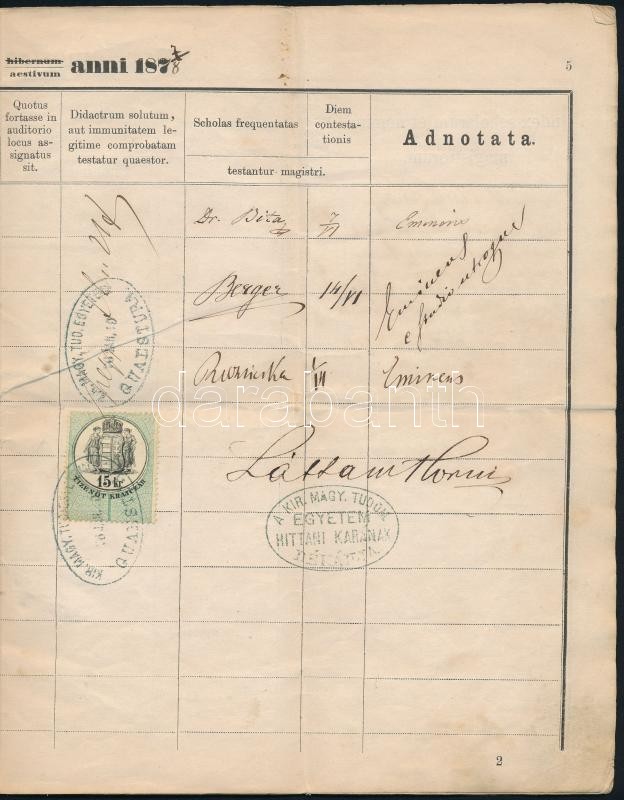 hibernum
aestivum anni 187 7/8
5
Quotus
fortasse in
auditorio
locus as-
signatus
sit.
Didactrum solutum,
aut immunitatem le-
gitime comprobatam
testatur quaestor.
Scholas frequentatas
Diem
contesta-
tionis
testantur magistri.
Adnotata.
Dr. Bita
Eminens
Berger 14/VI Eminens
e studio utroque
Ruzsicska Eminens
KIR. MAGY. TUD. EGYETEM
QUAESTURA
15 kr
TIZENÖT KRAJCZÁR
KIR. MAGY.
QUAES
Láttam
A KIR. MAGY. TUDOM.
EGYETEM
HITTANI KARÁNAK
DÉKÁNJA
darabanth
2